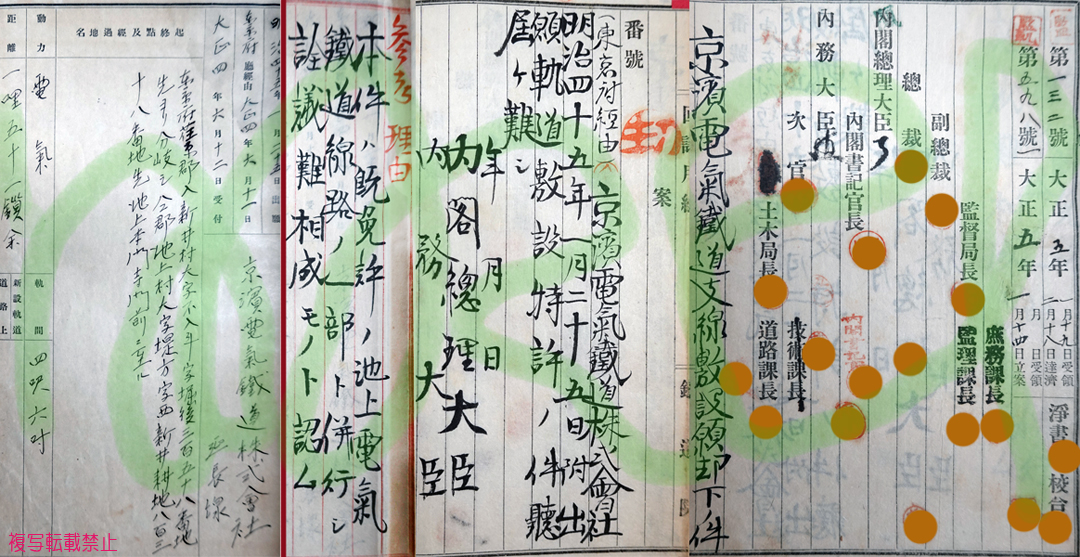 第一三二號 大正五年 一月十九日受領
二月十八日達濟
第五九八號 大正五年 月 日受領
一月十四日立案
淨書 校合
副總裁
監督局長
庶務課長
監理課長
總裁
技術課長
內閣總理大臣
內閣書記官長
內務大臣
次官
土木局長
道路課長
京濱電氣鐵道支線敷設願却下ノ件
案
番號
(東京府經由)
京濱電氣鐵道株式會社
明治四十五年一月二十五日附出
願軌道敷設特許ノ件聽
居ケ難シ
年 月 日
內閣總理大臣
內務大臣
參考
理由
本件ハ既免許ノ池上電氣
鐵道線路ノ一部ト併行シ
詮議難相成モノト認ム
明治四十五年一月二十五日出願
東京府廳經由 大正四年六月十一日
大正四年六月十二日受付
京濱電氣鐵道株式會社
延長線
起終點及經過地名
東京府荏原郡入新井村大字不入斗字堀後三百五十八番地
先ヨリ分岐シ仝郡池上村大字堤方字西新井耕地八百三
十八番地先池上本門寺門前ニ至ル
動力
電氣
軌間
四呎六吋
距離
一哩五十一鎖余
新設軌道
道路上
複写転載禁止